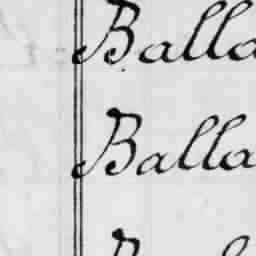 Balla
Balla